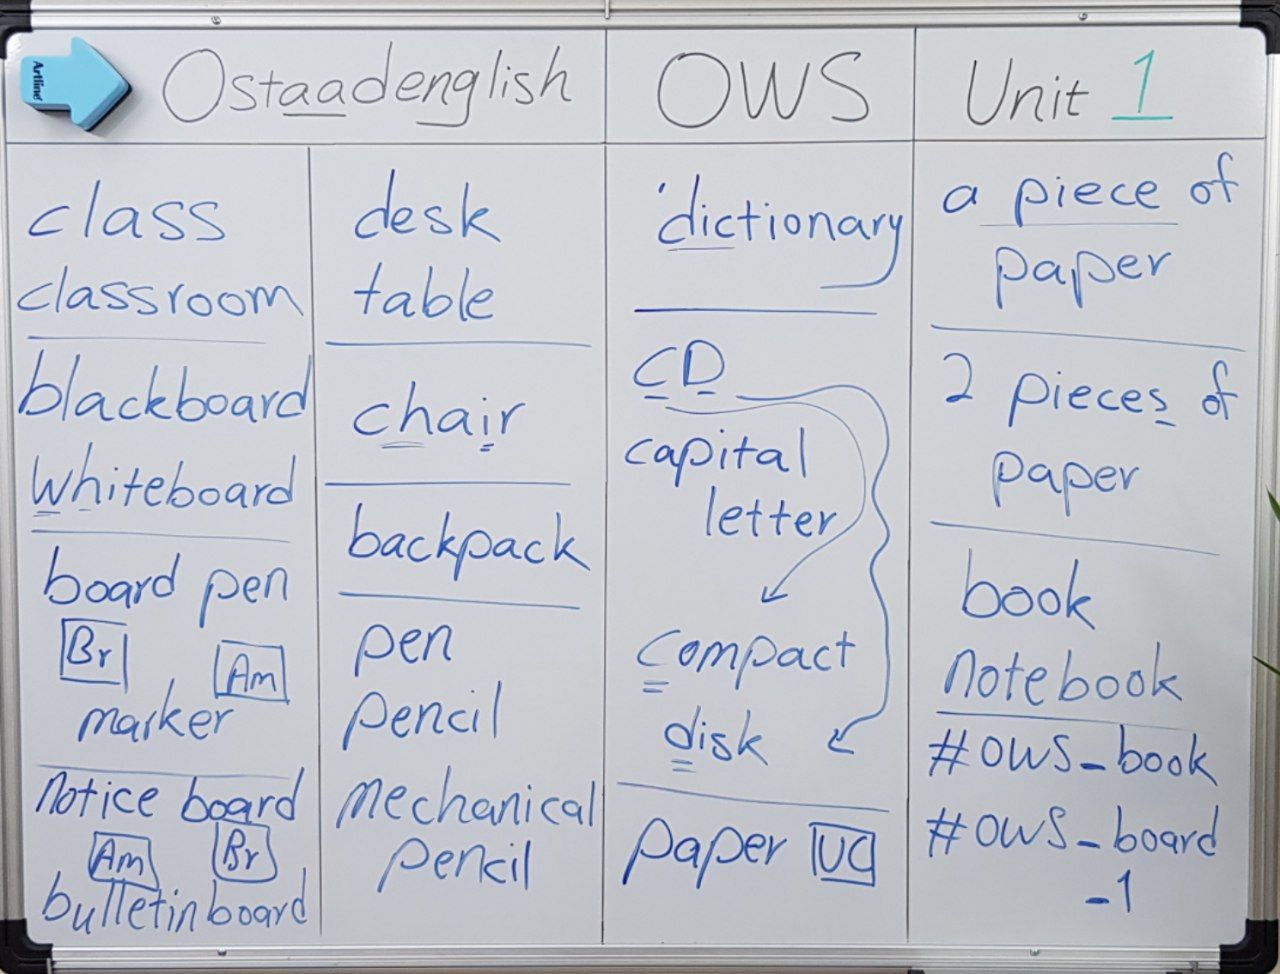 Artline
Ostaadenglish
OWS
Unit 1
class
classroom
blackboard
whiteboard
board pen
Br
Am
marker
notice board
Am
Br
bulletin board
desk
table
chair
backpack
pen
pencil
mechanical
pencil
dictionary
CD
capital
letter
compact
disk
paper UC
a piece of
paper
2 pieces of
paper
book
notebook
#OWS_book
#OWS_board
-1